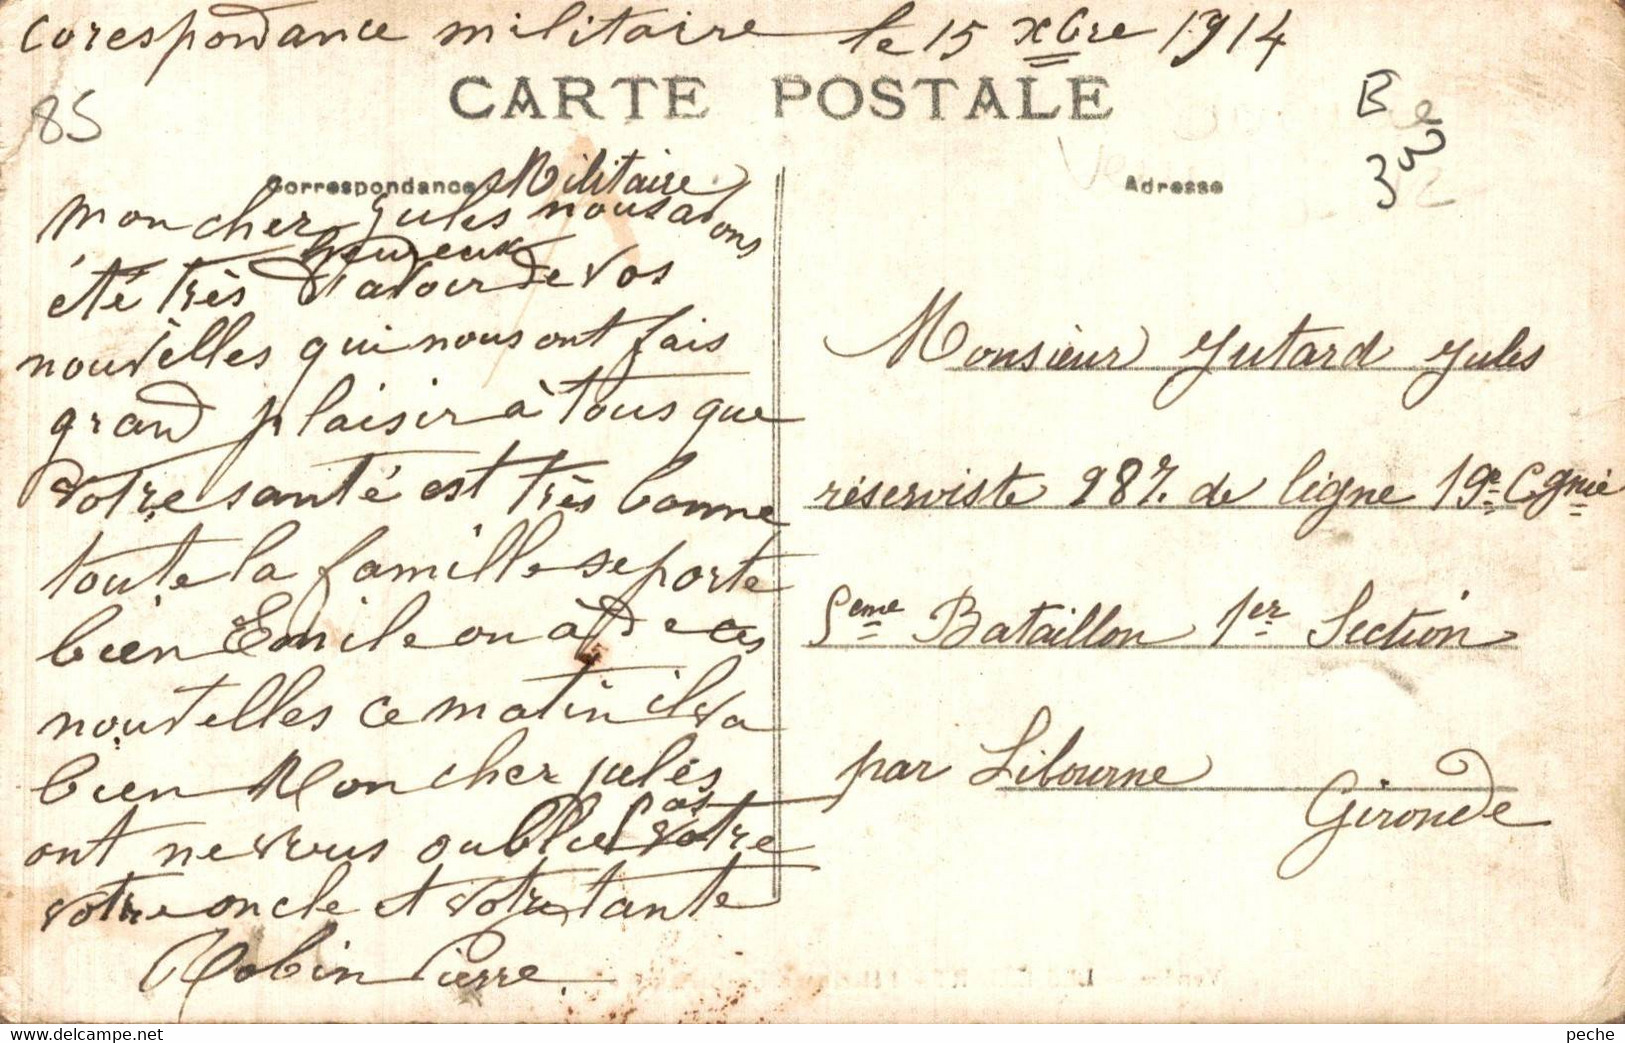 corespondance militaire le 15 xbre 1914
CARTE POSTALE
85
B
Correspondance Militaire
Adresse
mon cher Jules nous avons
été très heureux d'avoir de vos
nouvelles qui nous ont fais
grand plaisir à tous que
votre santé est très bonne
toute la famille se porte
bien Emile on à de ces
nouvelles ce matin il va
bien Mon cher jules
ont ne vous oublie pas votre
votre oncle et votre tante
Robin Pierre.
Monsieur Jutard Jules
réserviste 287. de ligne 19e Cgnie
5eme Bataillon 1er Section
par Libourne
Gironde
peche